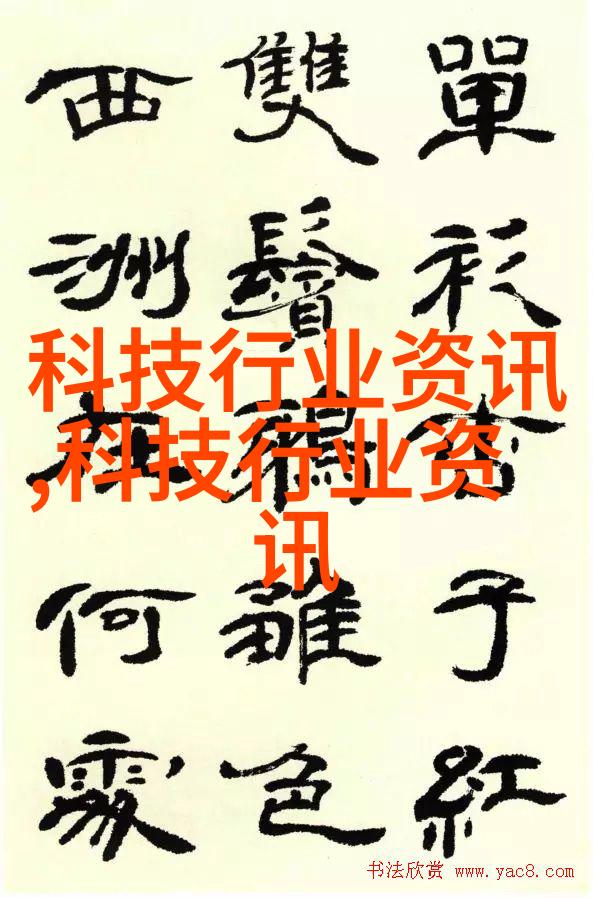 單衫杏子紅
雙鬢鴉雛色
西洲在何處
科技行业资讯
,科技行业资
讯
书法欣赏 www.yac8.com